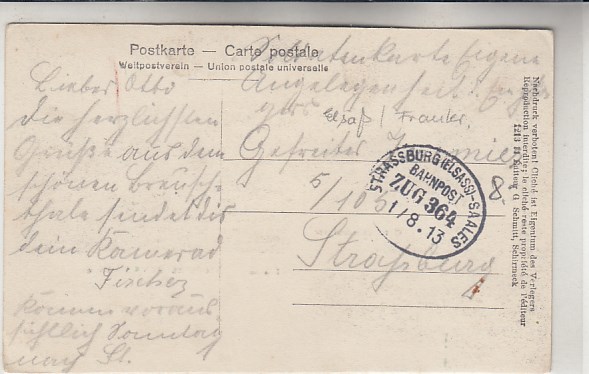 Postkarte — Carte postale
Weltpostverein — Union postale universelle
Soldatenkarte Eigene
Angelegenheit
Lieber Otto
die herzlichsten
Grüße aus dem
schönen Breusch-
thale sendet dir
dein Kamerad
Fischer
können voraus
sichtlich Sonntag
nach St.
Elsaß /
Gefreiter
5/105
Straßburg
8-
STRASSBURG (ELSASS)-SAALES
BAHNPOST
ZUG 364
1/8.13
Nachdruck verboten! Cliché ist Eigentum des Verlegers
Reproduction interdite; le cliché reste propriété de l'éditeur
Schmitt, Schirmeck